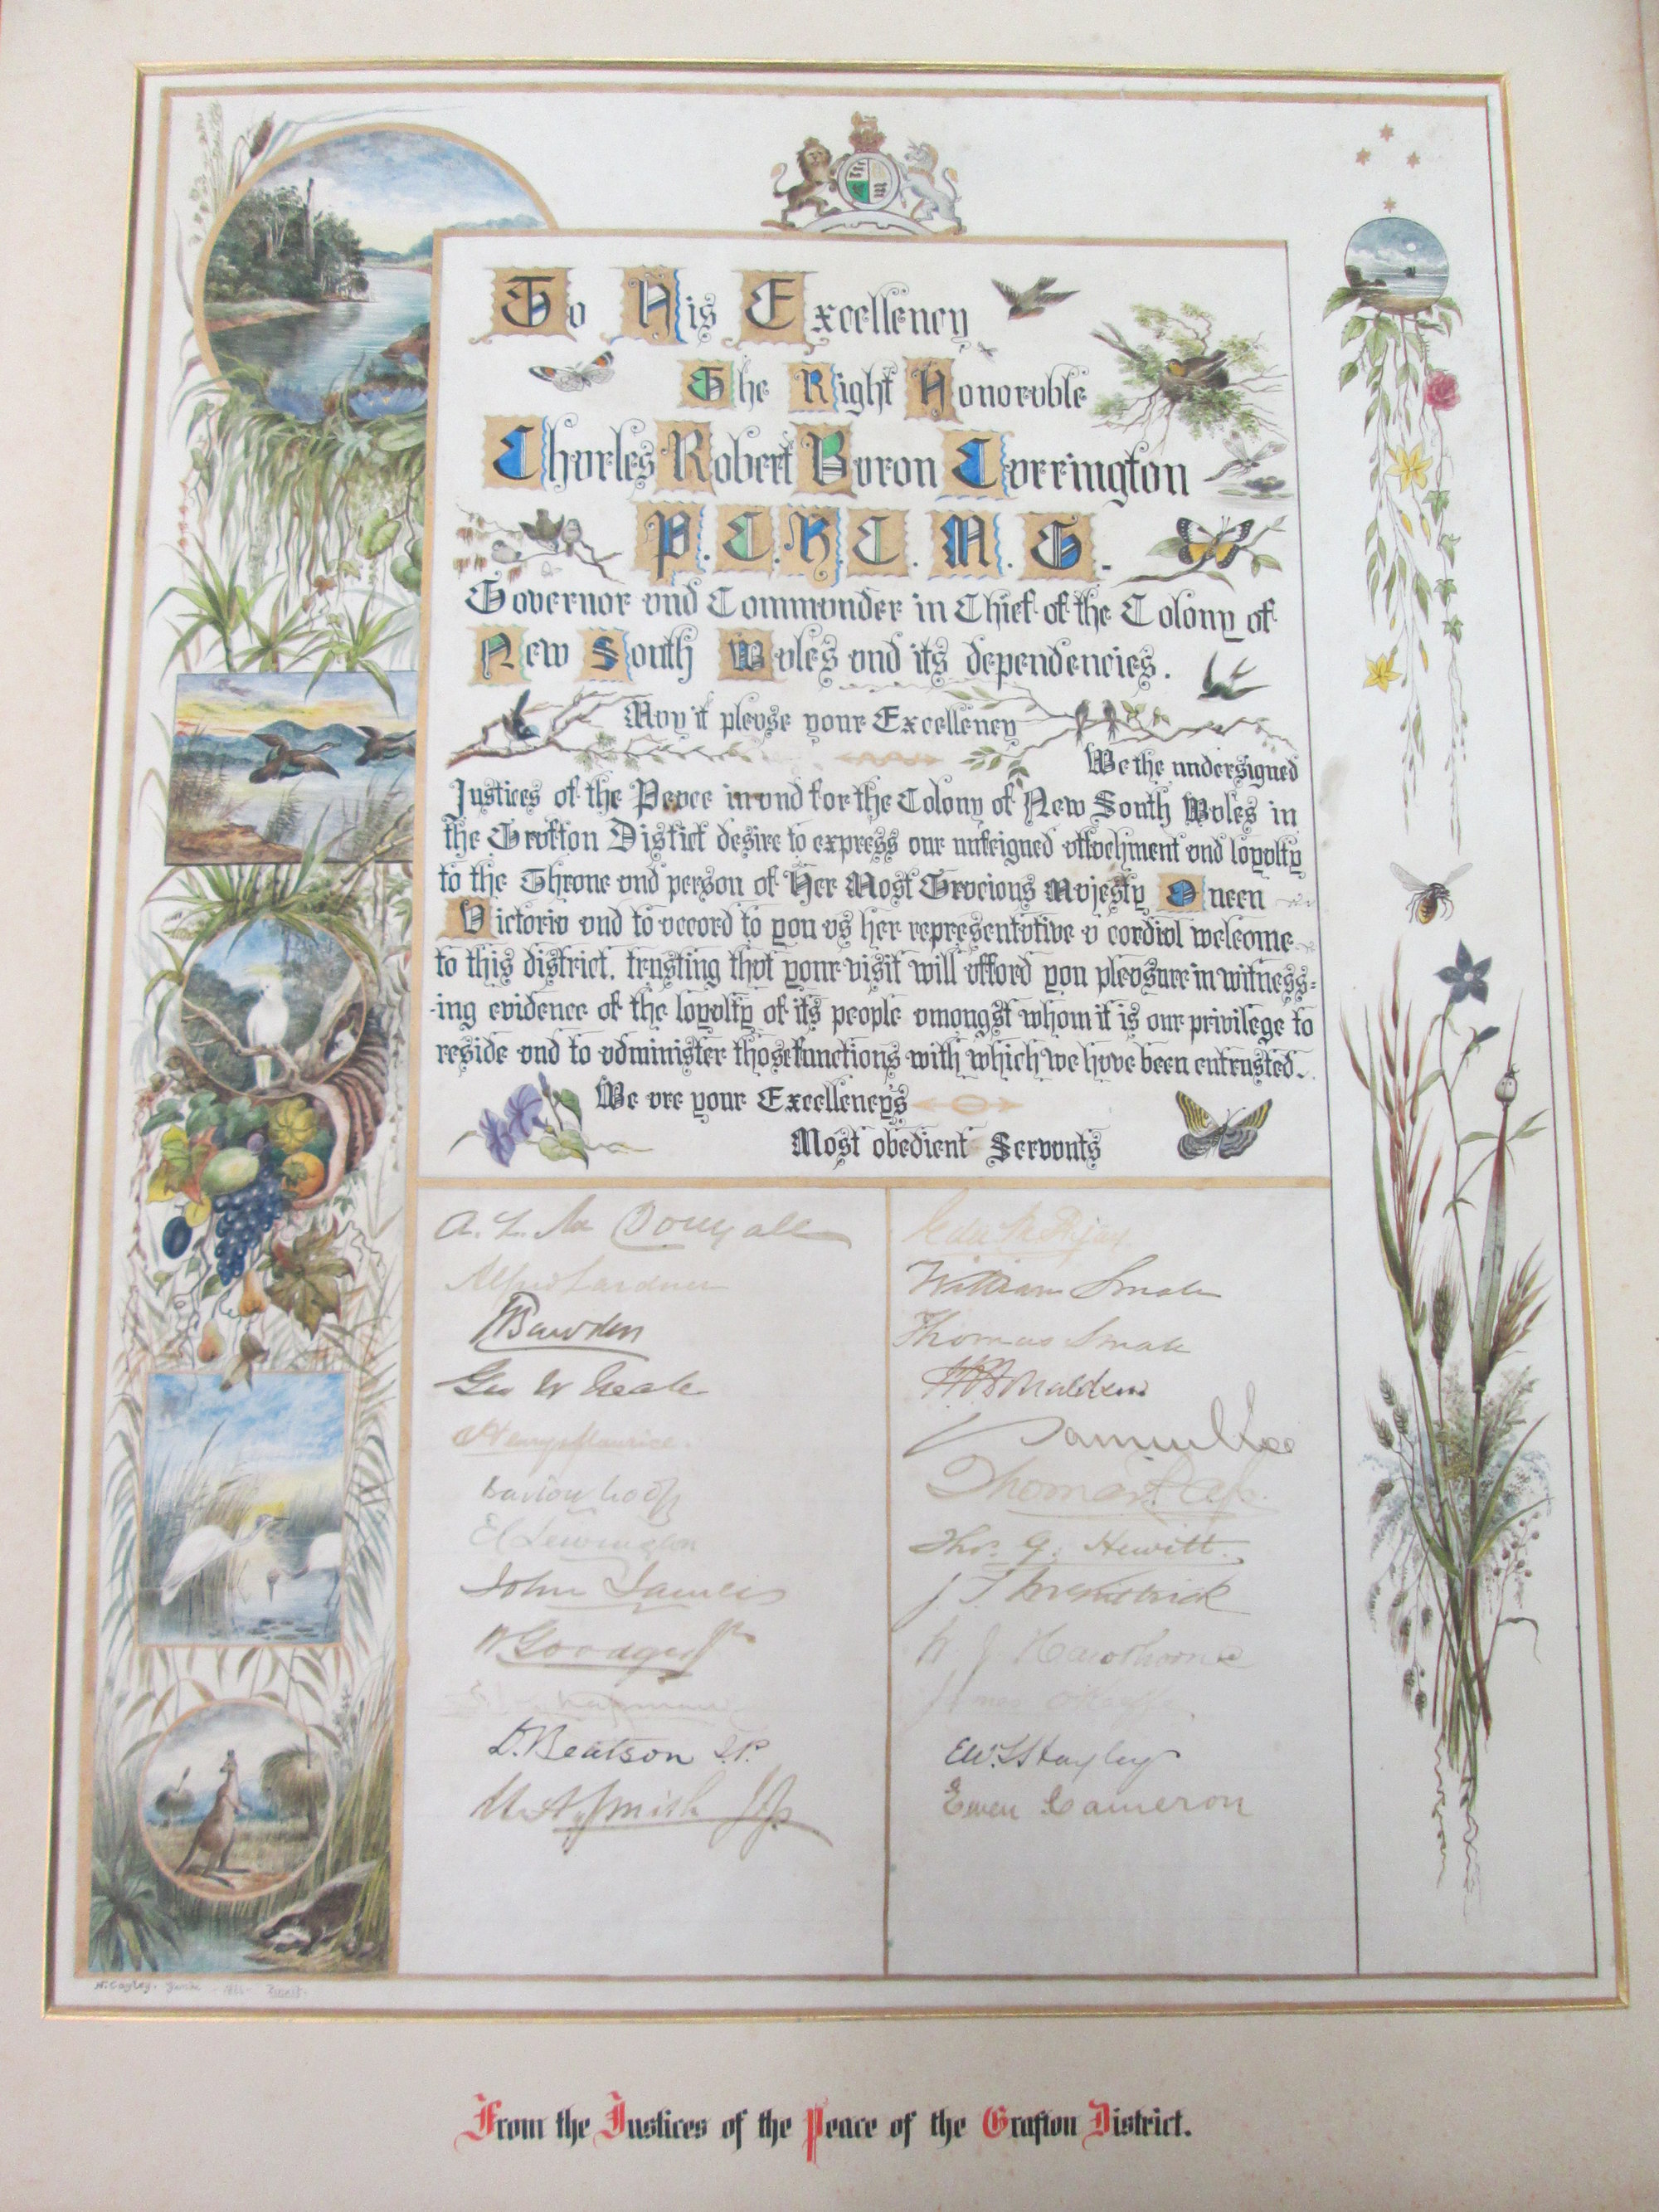 To His Excellency
The Right Honorable
Charles Robert Baron Carrington
P.C.K.C.M.G.
Governor and Commander in Chief of the Colony of
New South Wales and its dependencies.
May it please your Excellency
We the undersigned
Justices of the Peace in and for the Colony of New South Wales in
the Grafton District desire to express our unfeigned attachment and loyalty
to the Throne and person of Her Most Gracious Majesty Queen
Victoria and to accord to you as her representative a cordial welcome
to this district, trusting that your visit will afford you pleasure in witness=
-ing evidence of the loyalty of its people amongst whom it is our privilege to
reside and to administer those functions with which we have been entrusted.
We are your Excellency's
Most obedient Servants
A. L. McDougall
Alfred Lardner
T Bawden
Geo W
Henry Maurice
John
W Goodger Jr
D. Beatson J.P.
Smith JP
William Small
Thomas Small
Maldon
Samuel See
Thomas
Thos. G. Hewitt.
J T
W J Hawthorne
James
Ewen Cameron
N. Cayley.
From the Justices of the Peace of the Grafton District.